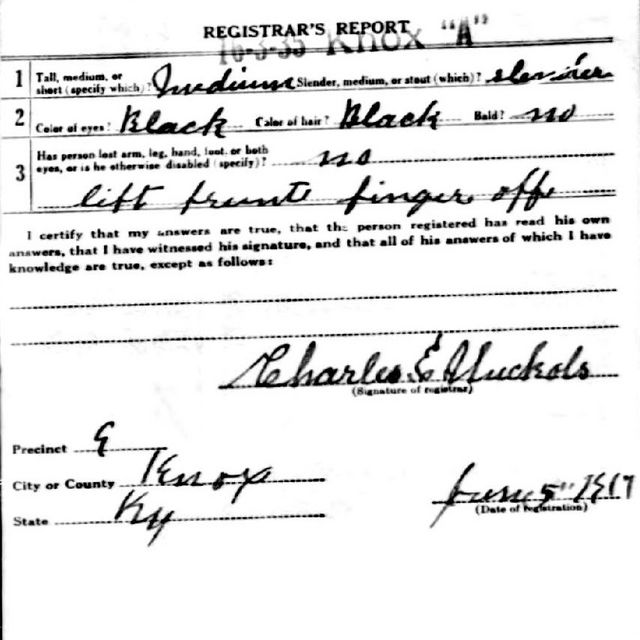 REGISTRAR'S REPORT
16-3-35 Knox "A"
1 Tall, medium, or short (specify which)? Medium Slender, medium, or stout (which)? slender
2 Color of eyes? Black Color of hair? Black Bald? no
3 Has person lost arm, leg, hand, foot, or both eyes, or is he otherwise disabled (specify)? no
lift frunt finger off
I certify that my answers are true, that the person registered has read his own
answers, that I have witnessed his signature, and that all of his answers of which I have
knowledge are true, except as follows:
Charles E Nuckols
(Signature of registrar)
Precinct E
City or County Knox
State Ky
June 5" 1917
(Date of registration)